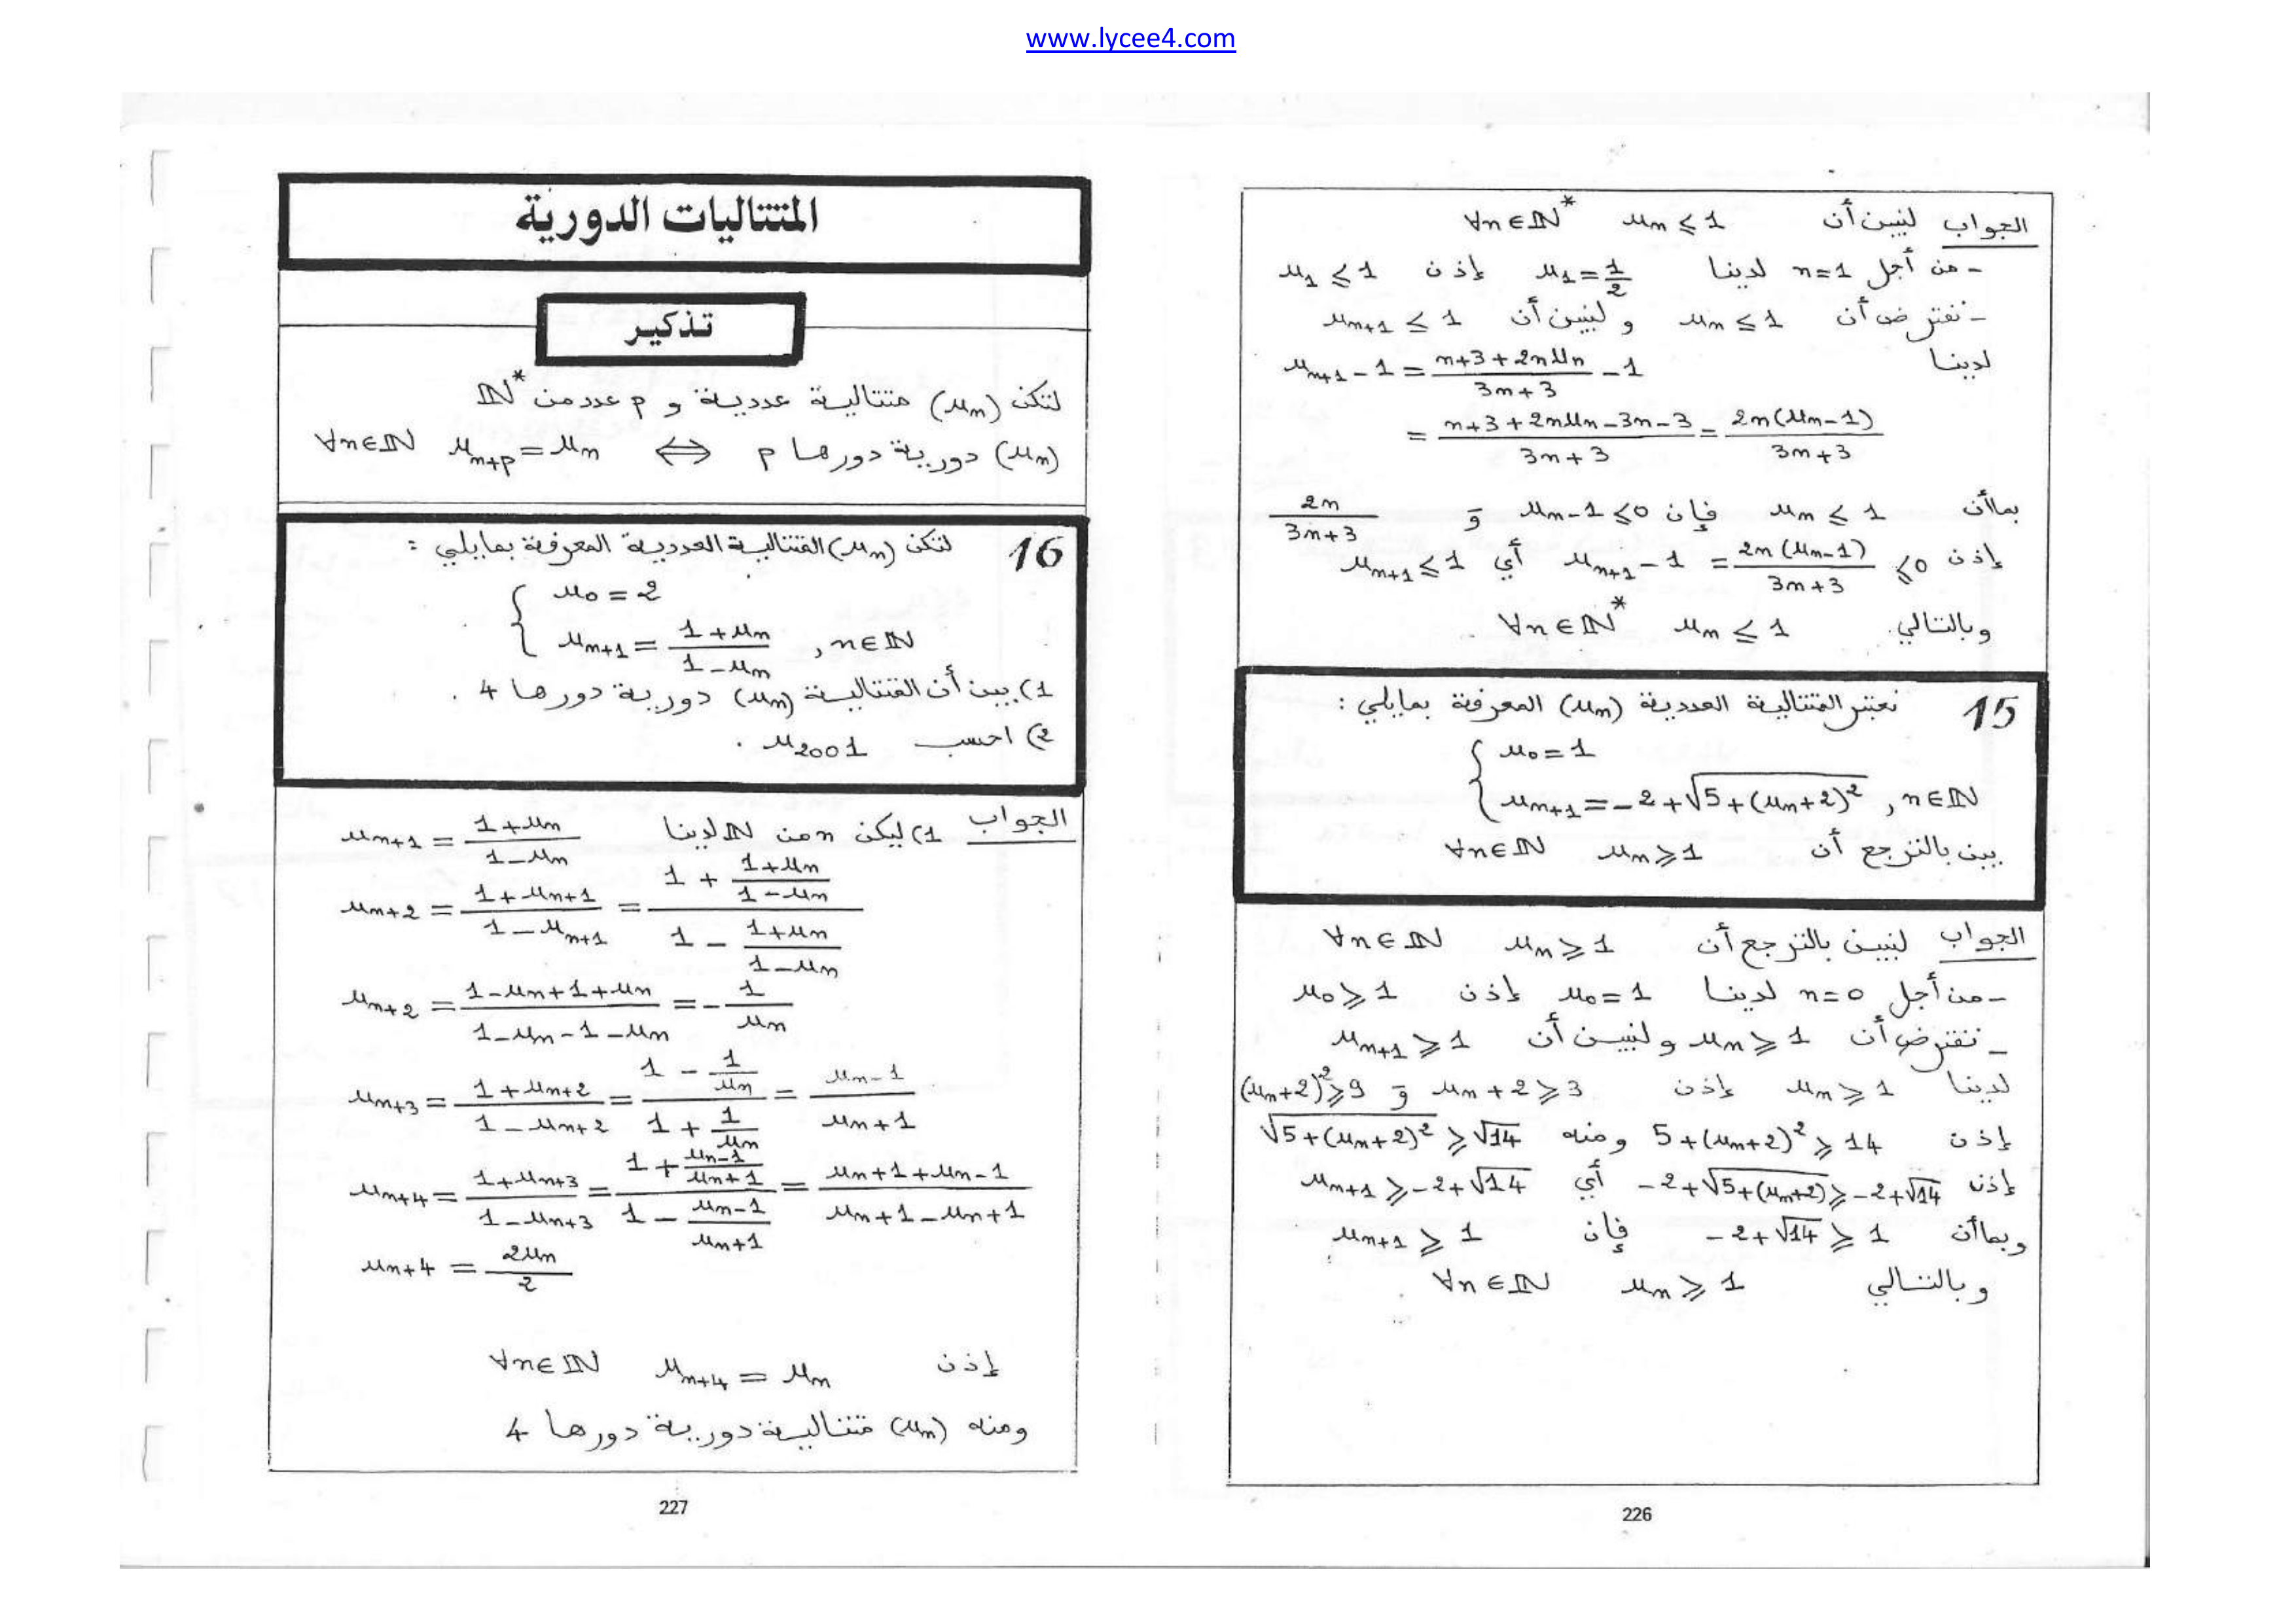 www.lycee4.com
الجواب لنبين أن u_n ≤ 1 ∀n∈ℕ*
- من أجل n=1 لدينا u_1 = 1/2 إذن u_1 ≤ 1
- نفترض أن u_n ≤ 1 و لنبين أن u_{n+1} ≤ 1
لدينا u_{n+1} - 1 = (n+3+2nu_n)/(3n+3) - 1
= (n+3+2nu_n-3n-3)/(3n+3) = 2n(u_n-1)/(3n+3)
بما أن u_n ≤ 1 فإن u_n-1 ≤ 0 و 2n/(3n+3)
إذن u_{n+1} - 1 = 2n(u_n-1)/(3n+3) ≤ 0 أي u_{n+1} ≤ 1
وبالتالي. u_n ≤ 1 ∀n∈ℕ*
15 نعتبر المتتالية العددية (u_n) المعرفة بمايلي :
{ u_0 = 1
u_{n+1} = -2+√(5+(u_n+2)²) , n∈ℕ
بين بالترجع أن u_n ≥ 1 ∀n∈ℕ
الجواب لنبين بالترجع أن u_n ≥ 1 ∀n∈ℕ
- من أجل n=0 لدينا u_0=1 إذن u_0 ≥ 1
- نفترض أن u_n ≥ 1 و لنبين أن u_{n+1} ≥ 1
لدينا u_n ≥ 1 إذن u_n+2 ≥ 3 و (u_n+2)² ≥ 9
إذن 5+(u_n+2)² ≥ 14 ومنه √(5+(u_n+2)²) ≥ √14
إذن -2+√(5+(u_n+2)) ≥ -2+√14 أي u_{n+1} ≥ -2+√14
وبما أن -2+√14 ≥ 1 فإن u_{n+1} ≥ 1
وبالتالي u_n ≥ 1 ∀n∈ℕ
226
المتتاليات الدورية
تذكير
لتكن (u_n) متتالية عددية و p عدد من ℕ*
(u_n) دورية دورها p ⇔ u_{n+p} = u_n ∀n∈ℕ
16 لتكن (u_n) المتتالية العددية المعرفة بمايلي :
{ u_0 = 2
u_{n+1} = (1+u_n)/(1-u_n) , n∈ℕ
1) بين أن المتتالية (u_n) دورية دورها 4 .
2) احسب u_{2001} .
الجواب 1) ليكن n من ℕ لدينا u_{n+1} = (1+u_n)/(1-u_n)
u_{n+2} = (1+u_{n+1})/(1-u_{n+1}) = (1 + (1+u_n)/(1-u_n))/(1 - (1+u_n)/(1-u_n))
u_{n+2} = (1-u_n+1+u_n)/(1-u_n-1-u_n) = -1/u_n
u_{n+3} = (1+u_{n+2})/(1-u_{n+2}) = (1 - 1/u_n)/(1 + 1/u_n) = (u_n-1)/(u_n+1)
u_{n+4} = (1+u_{n+3})/(1-u_{n+3}) = (1 + (u_n-1)/(u_n+1))/(1 - (u_n-1)/(u_n+1)) = (u_n+1+u_n-1)/(u_n+1-u_n+1)
u_{n+4} = 2u_n/2
إذن u_{n+4} = u_n ∀n∈ℕ
ومنه (u_n) متتالية دورية دورها 4
227